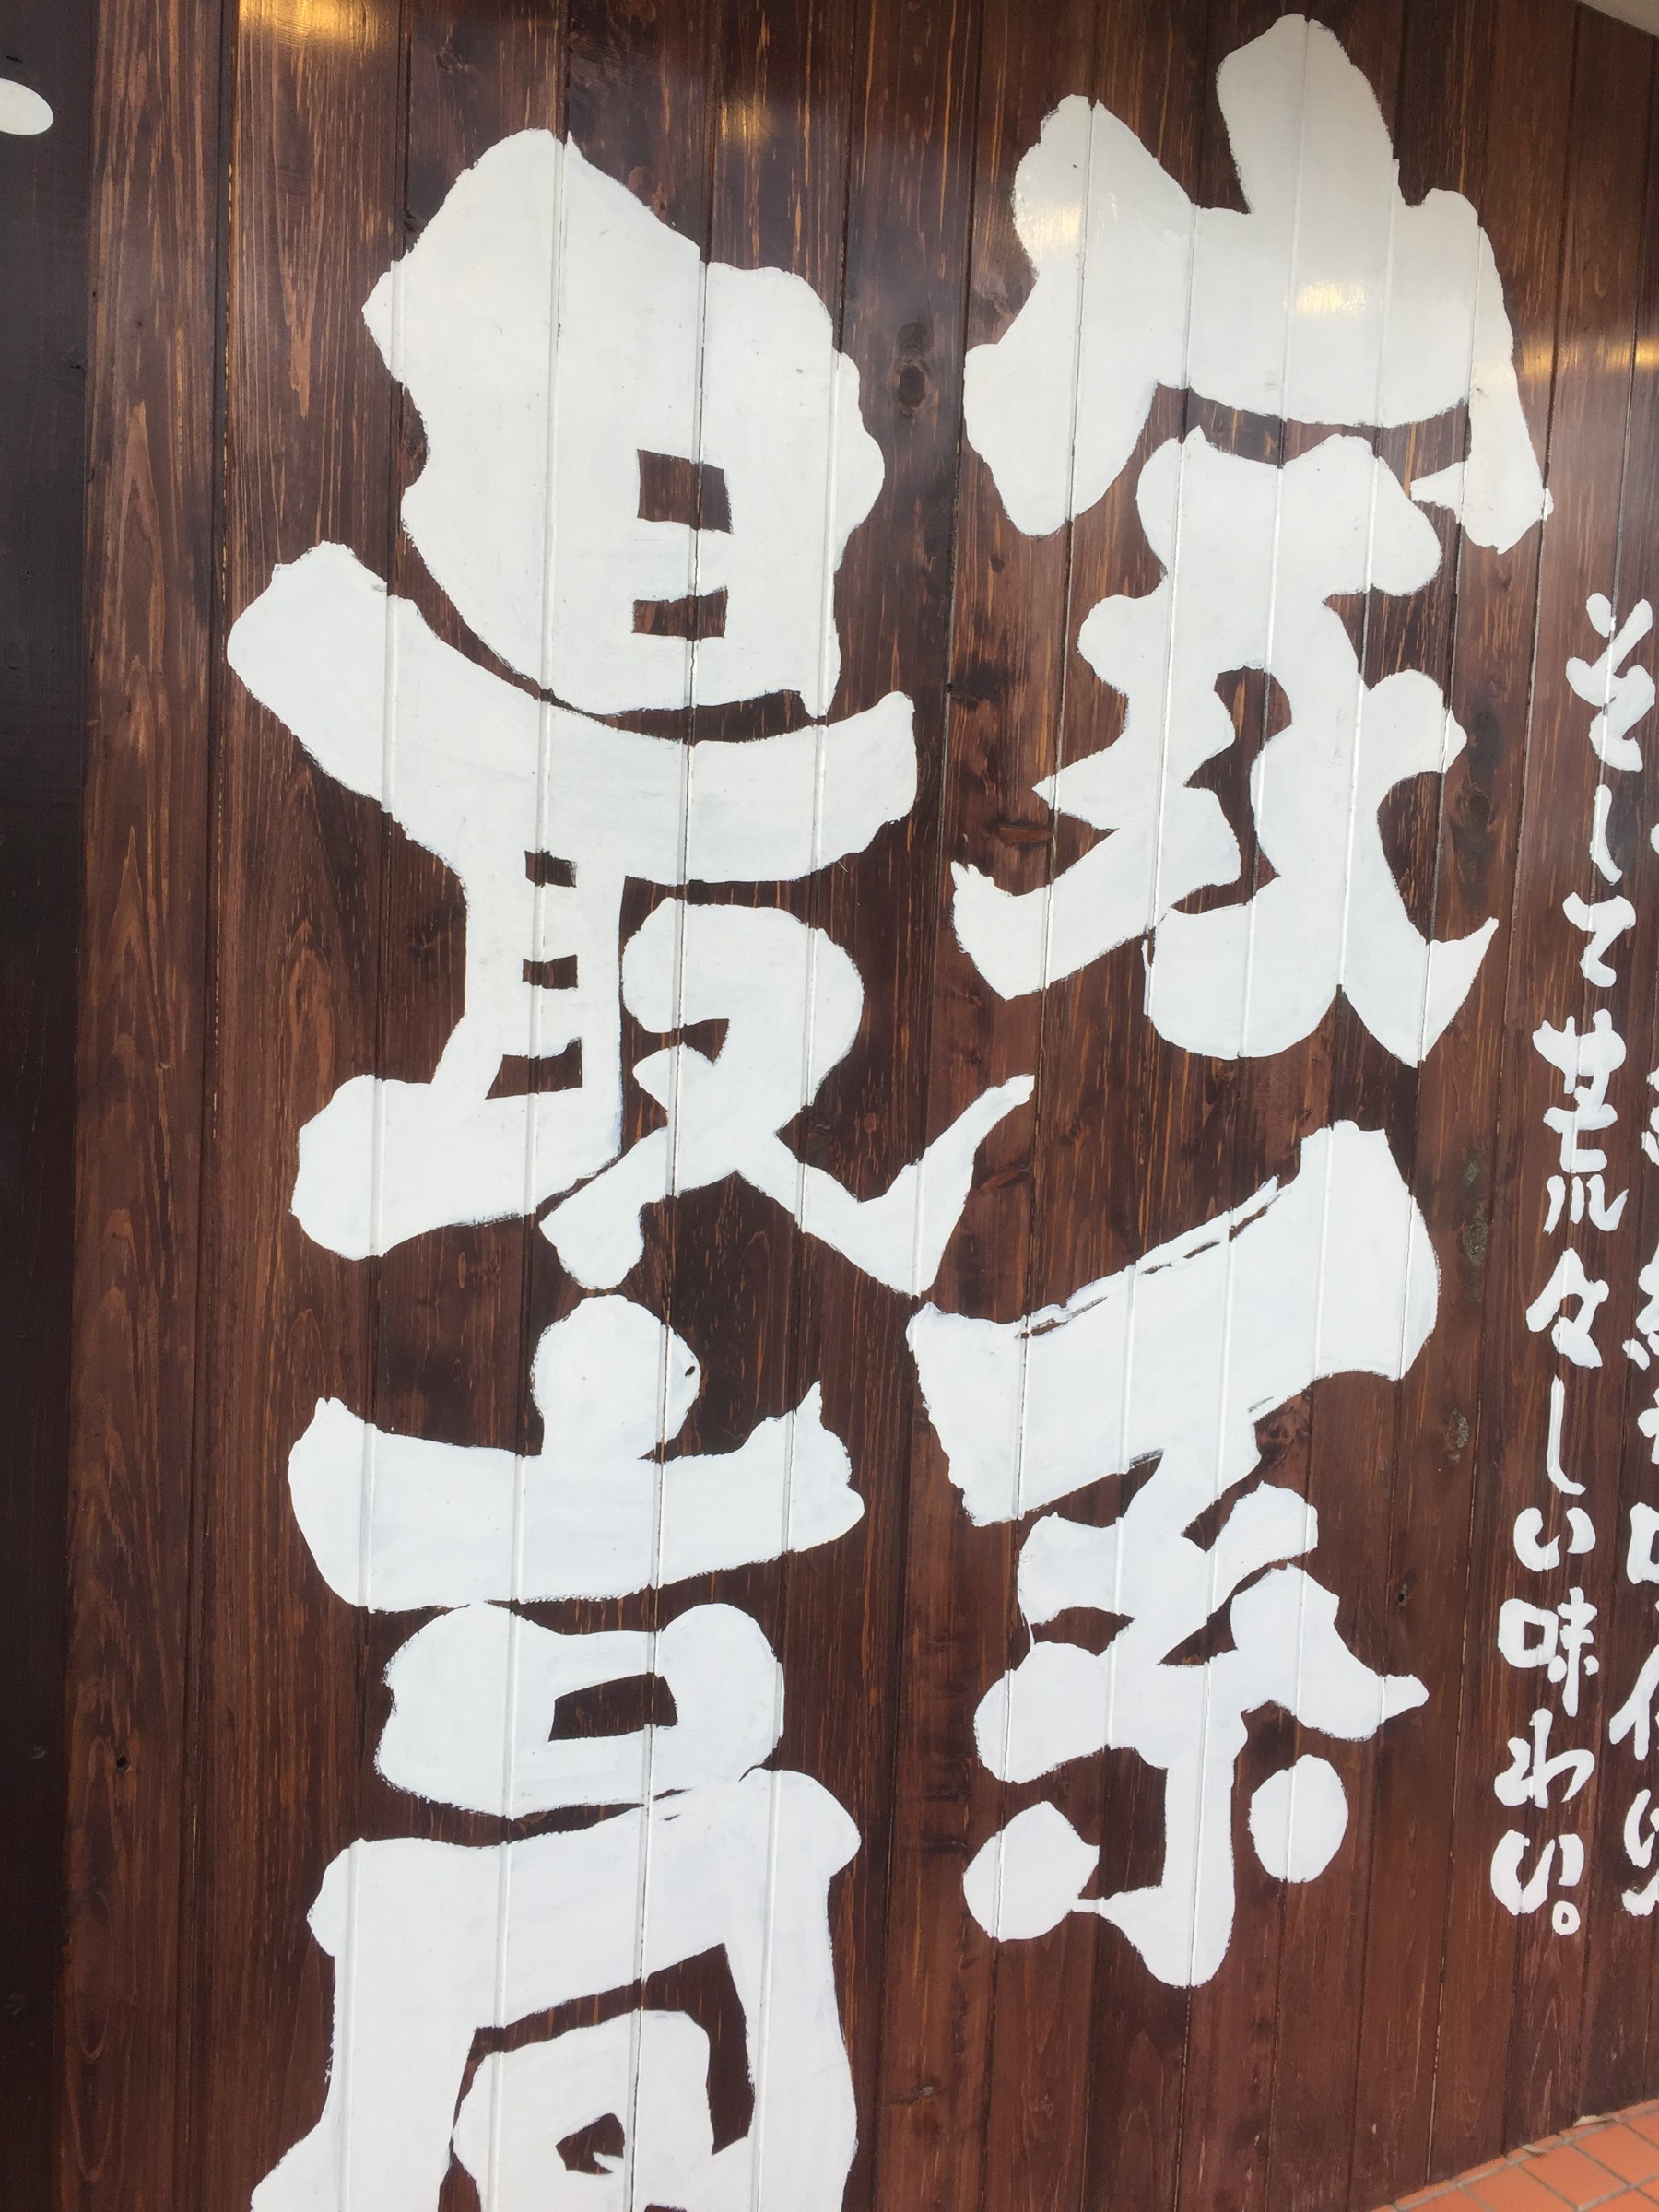 そして荒々しい味わい。
家系
最高